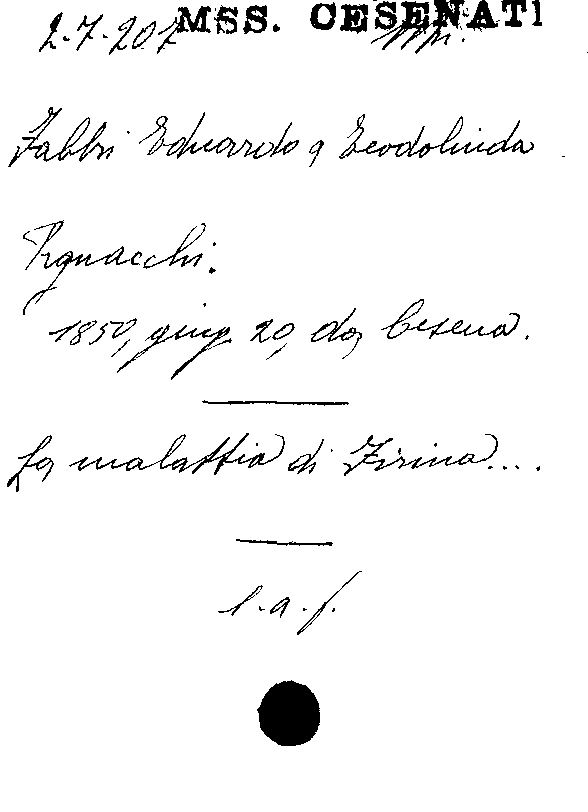 MSS. CESENATI
2-7-207
Fabbri Eduardo a Teodolinda
Pignacchi.
1850, giug. 20, da Cesena.
La malattia di Firina....
l.a.f.